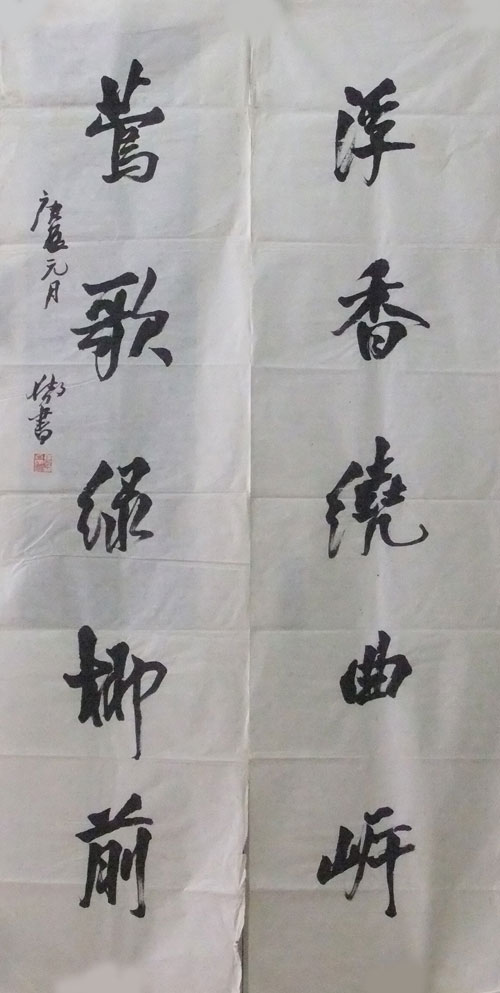 浮香繞曲岍
鶯歌绿柳前
庚寅元月
書